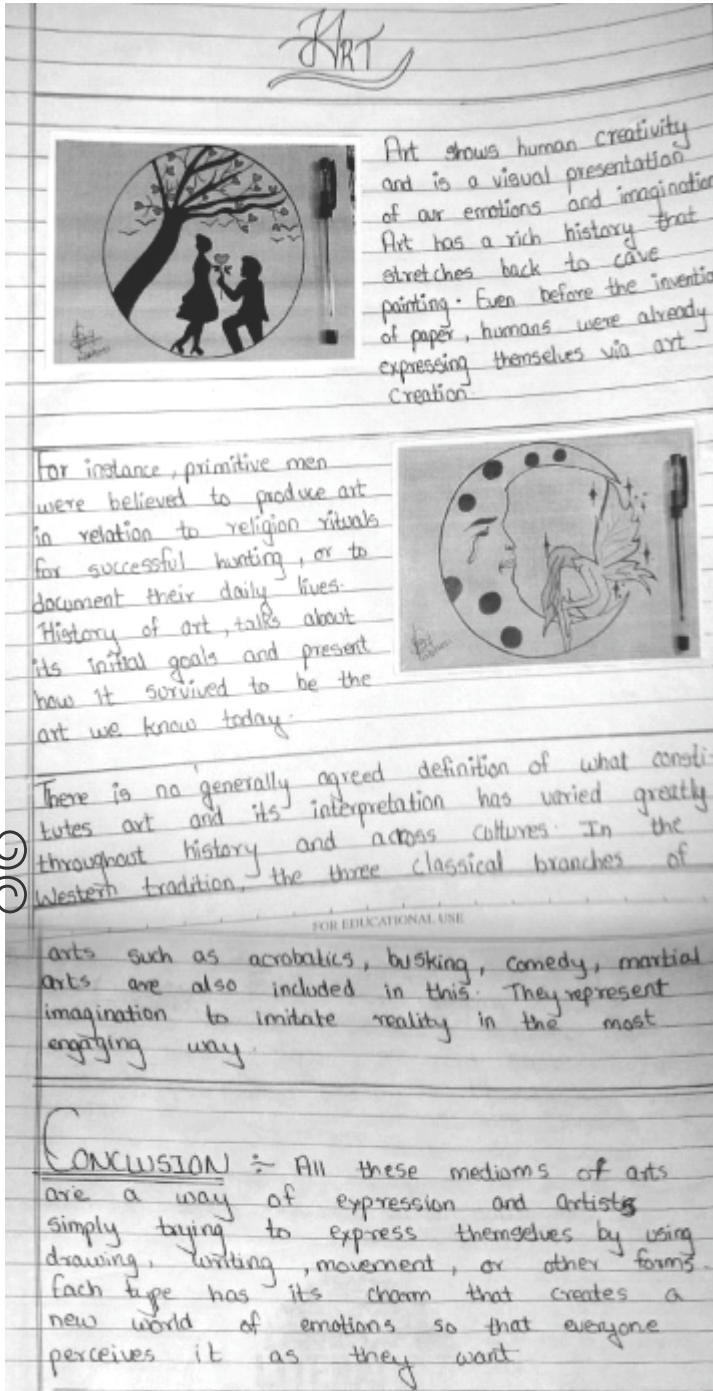 ART
Art shows human creativity
and is a visual presentation
of our emotions and imagination
Art has a rich history that
stretches back to cave
painting. Even before the inventio
of paper, humans were already
expressing themselves via art
Creation.
For instance, primitive men
were believed to produce art
in relation to religion rituals
for successful hunting, or to
document their daily lives.
History of art, talks about
its initial goals and present
how it survived to be the
art we know today.
There is no generally agreed definition of what consti-
tutes art and its interpretation has varied greatly
throughout history and across cultures. In the
Western tradition, the three classical branches of
FOR EDUCATIONAL USE
arts such as acrobatics, busking, comedy, martial
arts are also included in this. They represent
imagination to imitate reality in the most
engaging way.
CONCLUSION :- All these medioms of arts
are a way of expression and artists
simply trying to express themselves by using
drawing, writing, movement, or other forms.
Each type has its charm that creates a
new world of emotions so that everyone
perceives it as they want